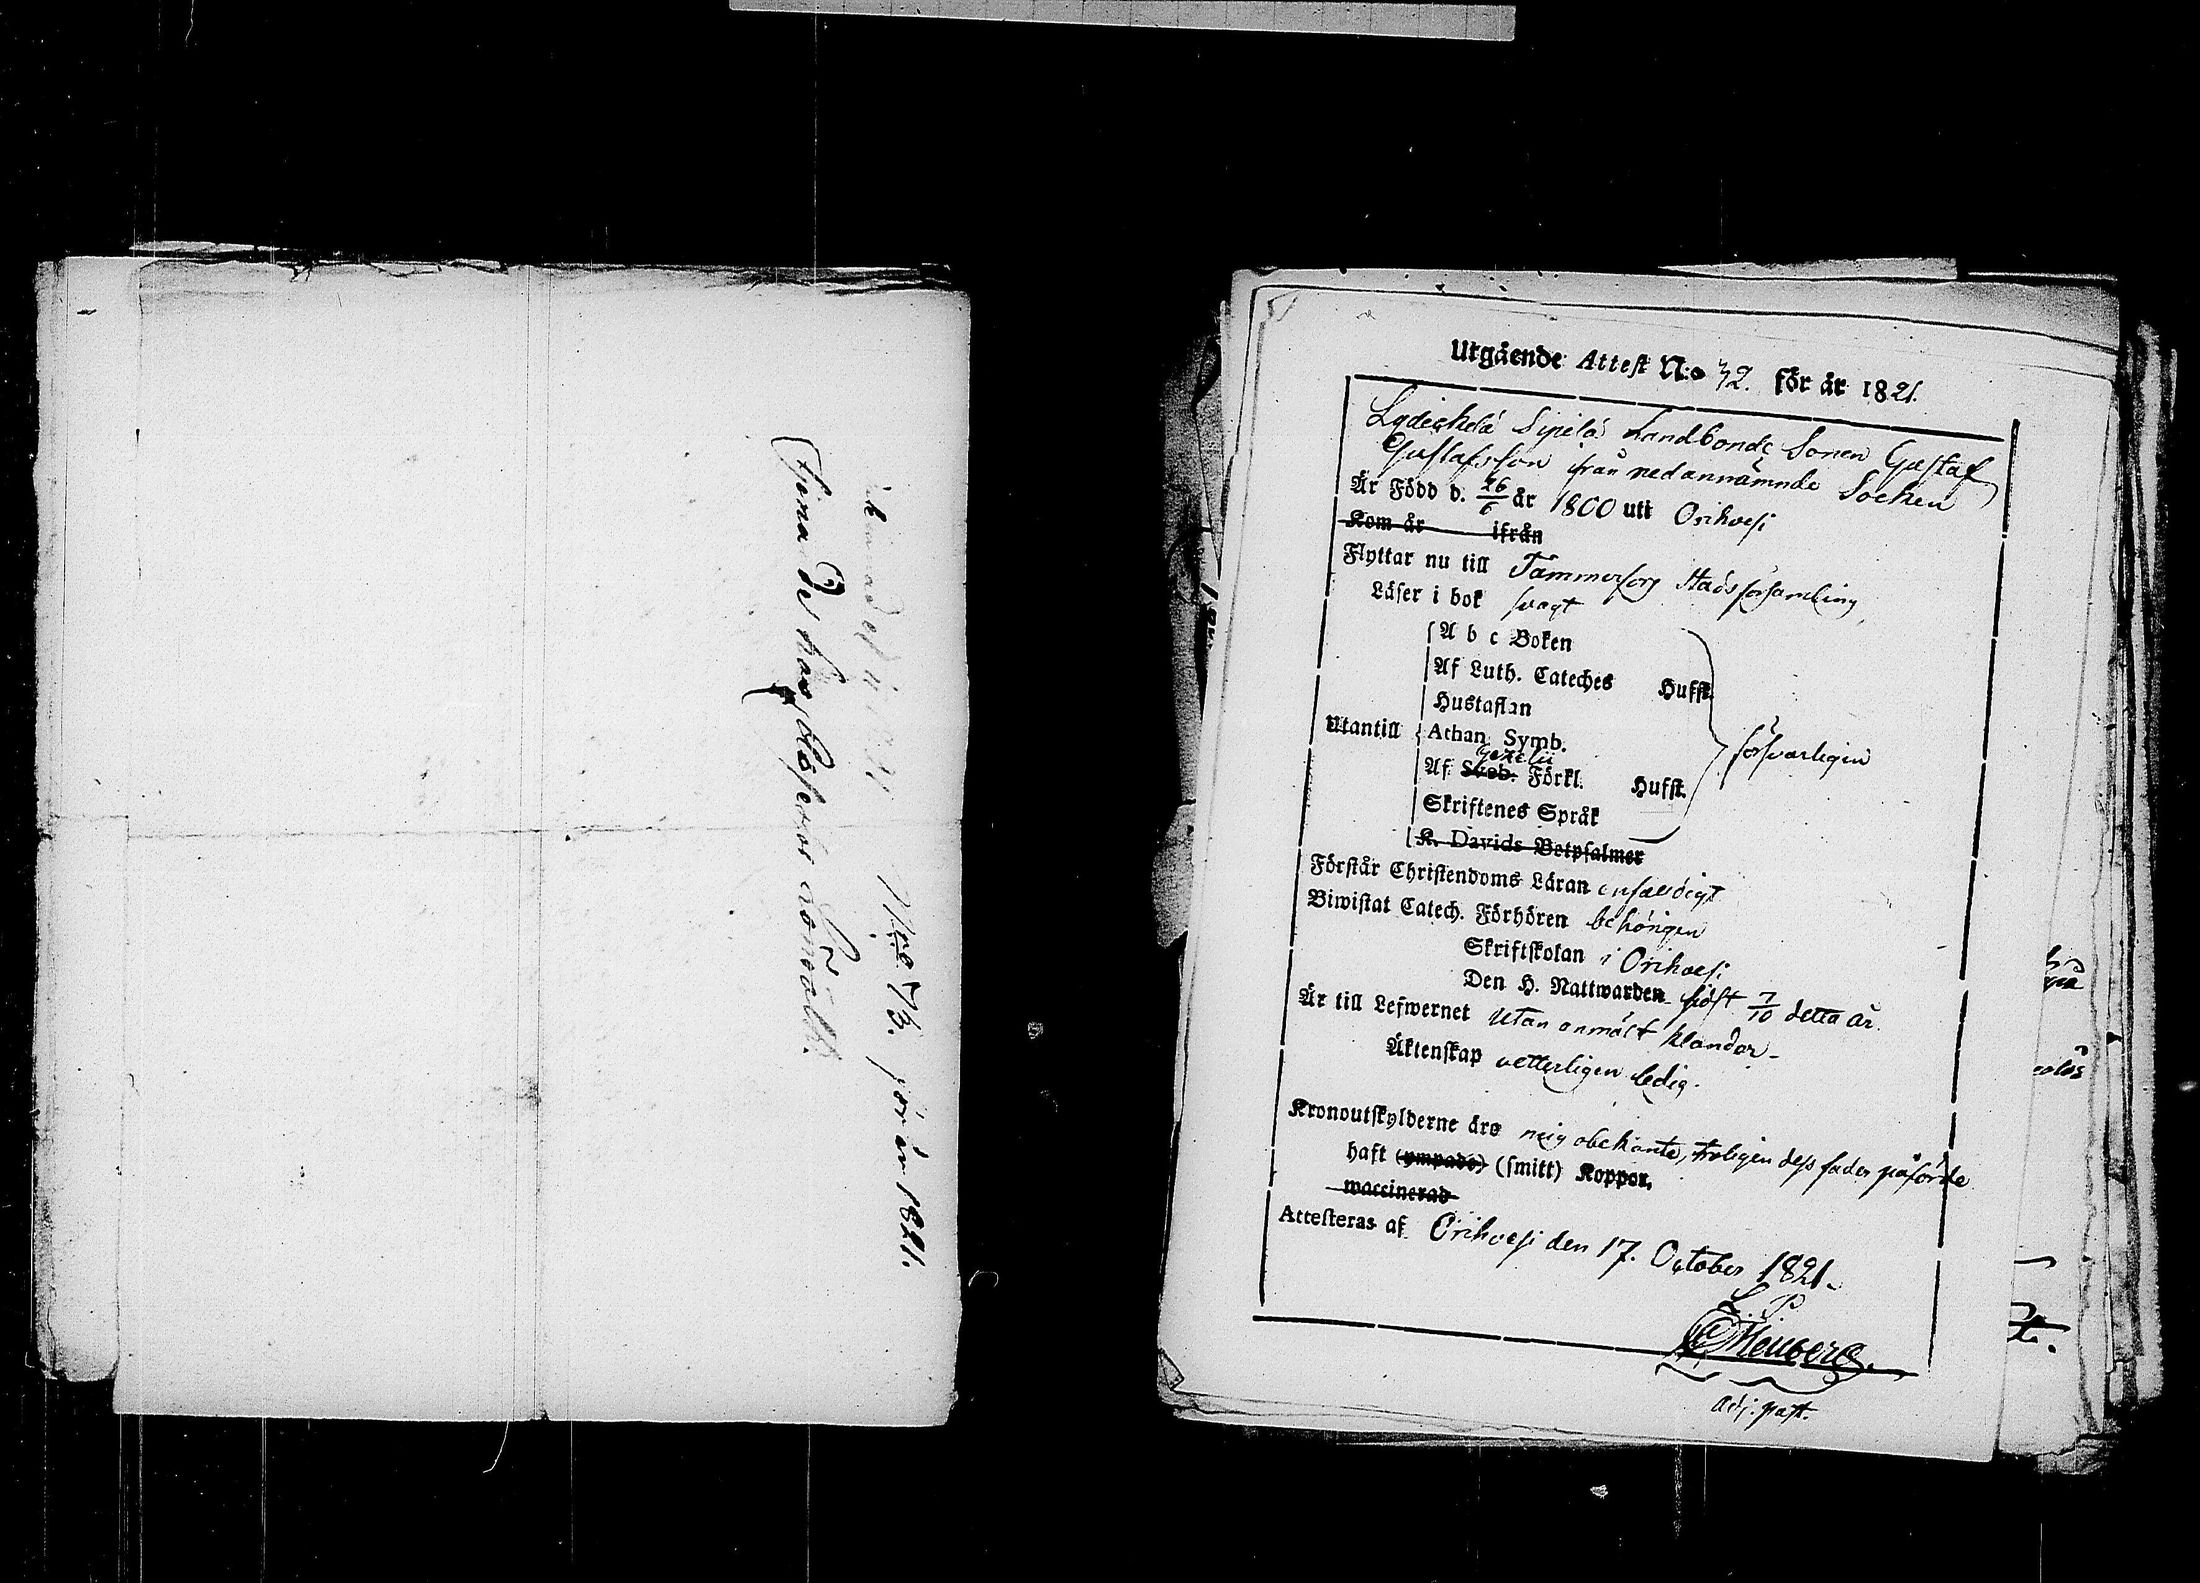 No 73. för år 1821.
Utgående Attest N:o 72. för år 1821.
Sipilä Landbonde Sonen Gustaf
Gustafsson från nedannämnde Socken
Är Född d. 26/6 år 1800 uti Orihvesi
Kom år ifrån
Flyttar nu till Tammerfors Stadsförsamling
Läser i bok svagt
A b c Boken
Af Luth. Cateches Hufst.
Hustaflan
Utantill Athan. Symb. försvarligen
Gezelii
Af Sveb. Förkl. Hufst.
Skriftenes Språk
K. Davids Botpsalmer
Förstår Christendoms Läran enfaldigt
Biwistat Catech. Förhören behörigen
Skriftskolan i Orihvesi
Den H. Nattwarden sidst 7/10 detta år.
Är till Lefwernet utan anmält klander
Äktenskap vetterligen ledig.
Kronoutskylderne äro mig obekante, troligen dess fader påförde
haft (ympade) (smitt) Koppor,
waccinerad
Attesteras af Orihvesi den 17. October 1821.
Adj. past.